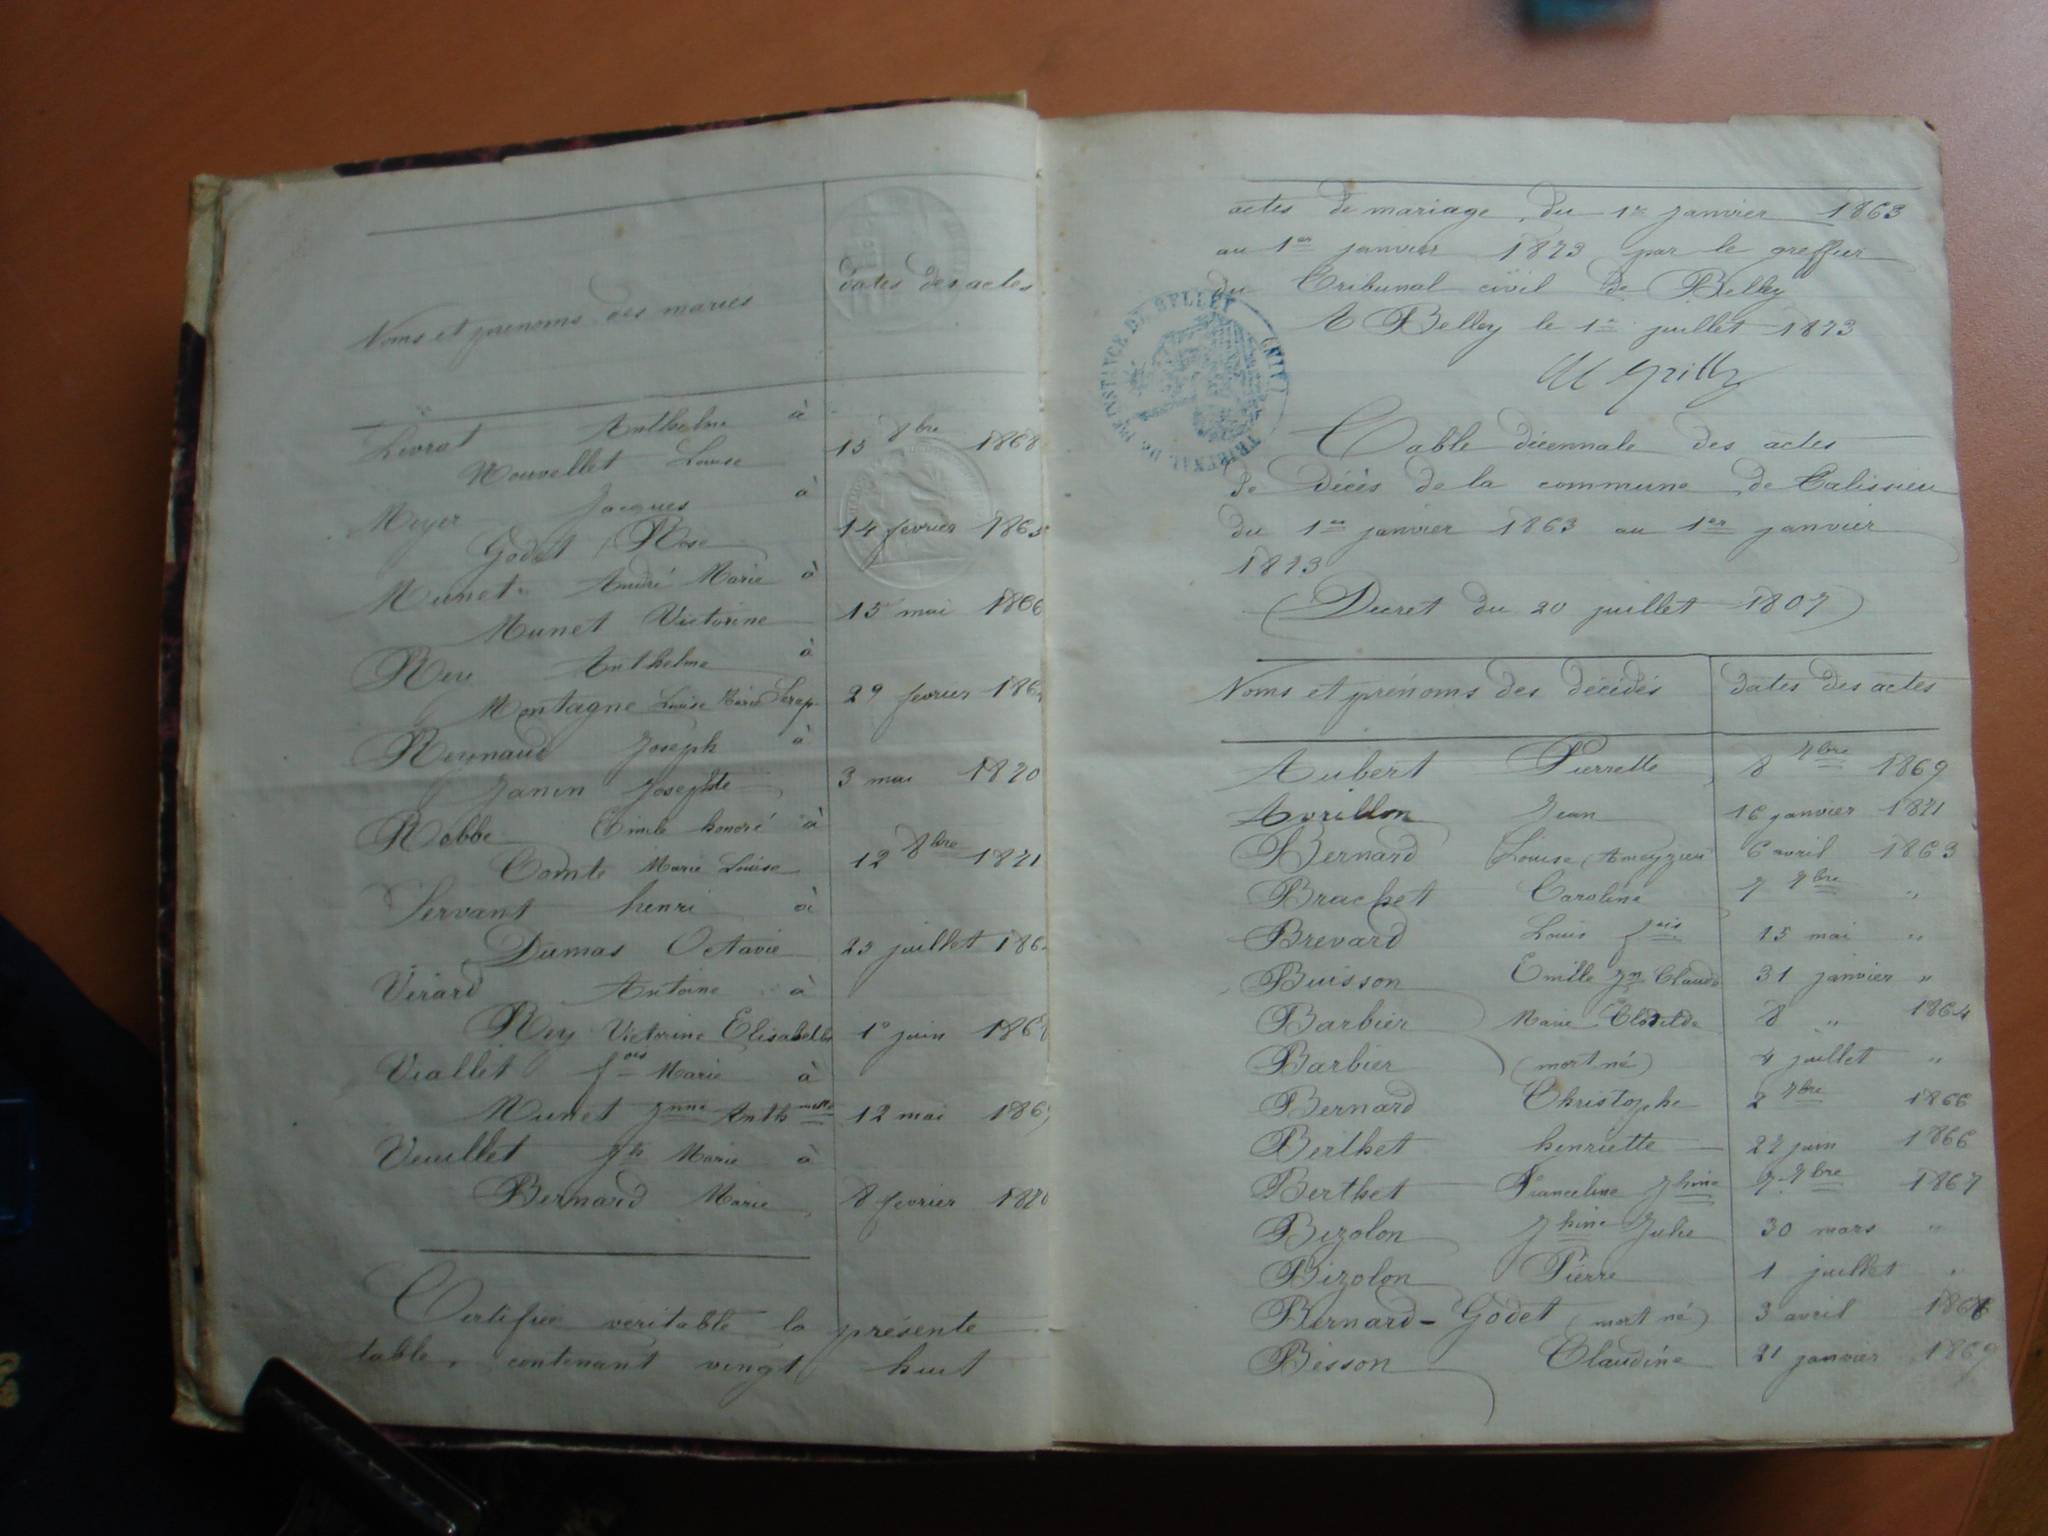 Noms et prénoms des mariés
dates des actes
Livrat Anthelme à
Nouvellet Louise 15 8bre 1868
Meyer Jacques à
Godet Rose 14 fevrier 1865
Munet André Marie à
Munet Victorine 15 mai 1866
Rey Anthelme à
Montagne Louise Marie Serap. 29 fevrier 186
Reynaud Joseph à
Janin Josephte 3 mai 1870
Robbe honoré à
Comte Marie Louise 12 8bre 1871
Servant henri à
Dumas Octavie 25 juillet 186
Virard Antoine à
Rey Victorine Elisabeth 1er juin 186
Viallet fois Marie à
Munet Jnne Anthmette 12 mai 186
Veuillet Jh Marie à
Bernard Marie 8 fevrier 1870
Certifiée veritable la présente
table, contenant vingt huit
actes de mariage, du 1er janvier 1863
au 1er janvier 1873 par le greffier
du Tribunal civil de Belley
A Belley le 1er juillet 1873
TRIBUNAL DE 1RE INSTANCE DE BELLEY (AIN)
Table décennale des actes
de décès de la commune de Talissieu
du 1er janvier 1863 au 1er janvier
1873
(Decret du 20 juillet 1807)
Noms et prénoms des décédés dates des actes
Aubert Pierrette 8 7bre 1869
Avrillon Jean 16 janvier 1871
Bernard Louise (Ameyzieu 6 avril 1863
Brachet Caroline 7 7bre "
Brevard Louis fois 15 mai "
Buisson Emille Jn Claude 31 janvier "
Barbier Marie Clotilde 8 " 1864
Barbier (mort né) 4 juillet "
Bernard Christophe 2 7bre 1866
Berthet henriette 27 juin 1866
Berthet Franceline Jhine 7 7bre 1867
Bizolon Jhine Julie 30 mars "
Bizolon Pierre 1 juillet "
Bernard-Godet (mort né) 3 avril 1868
Bisson Claudine 21 janvier 1869